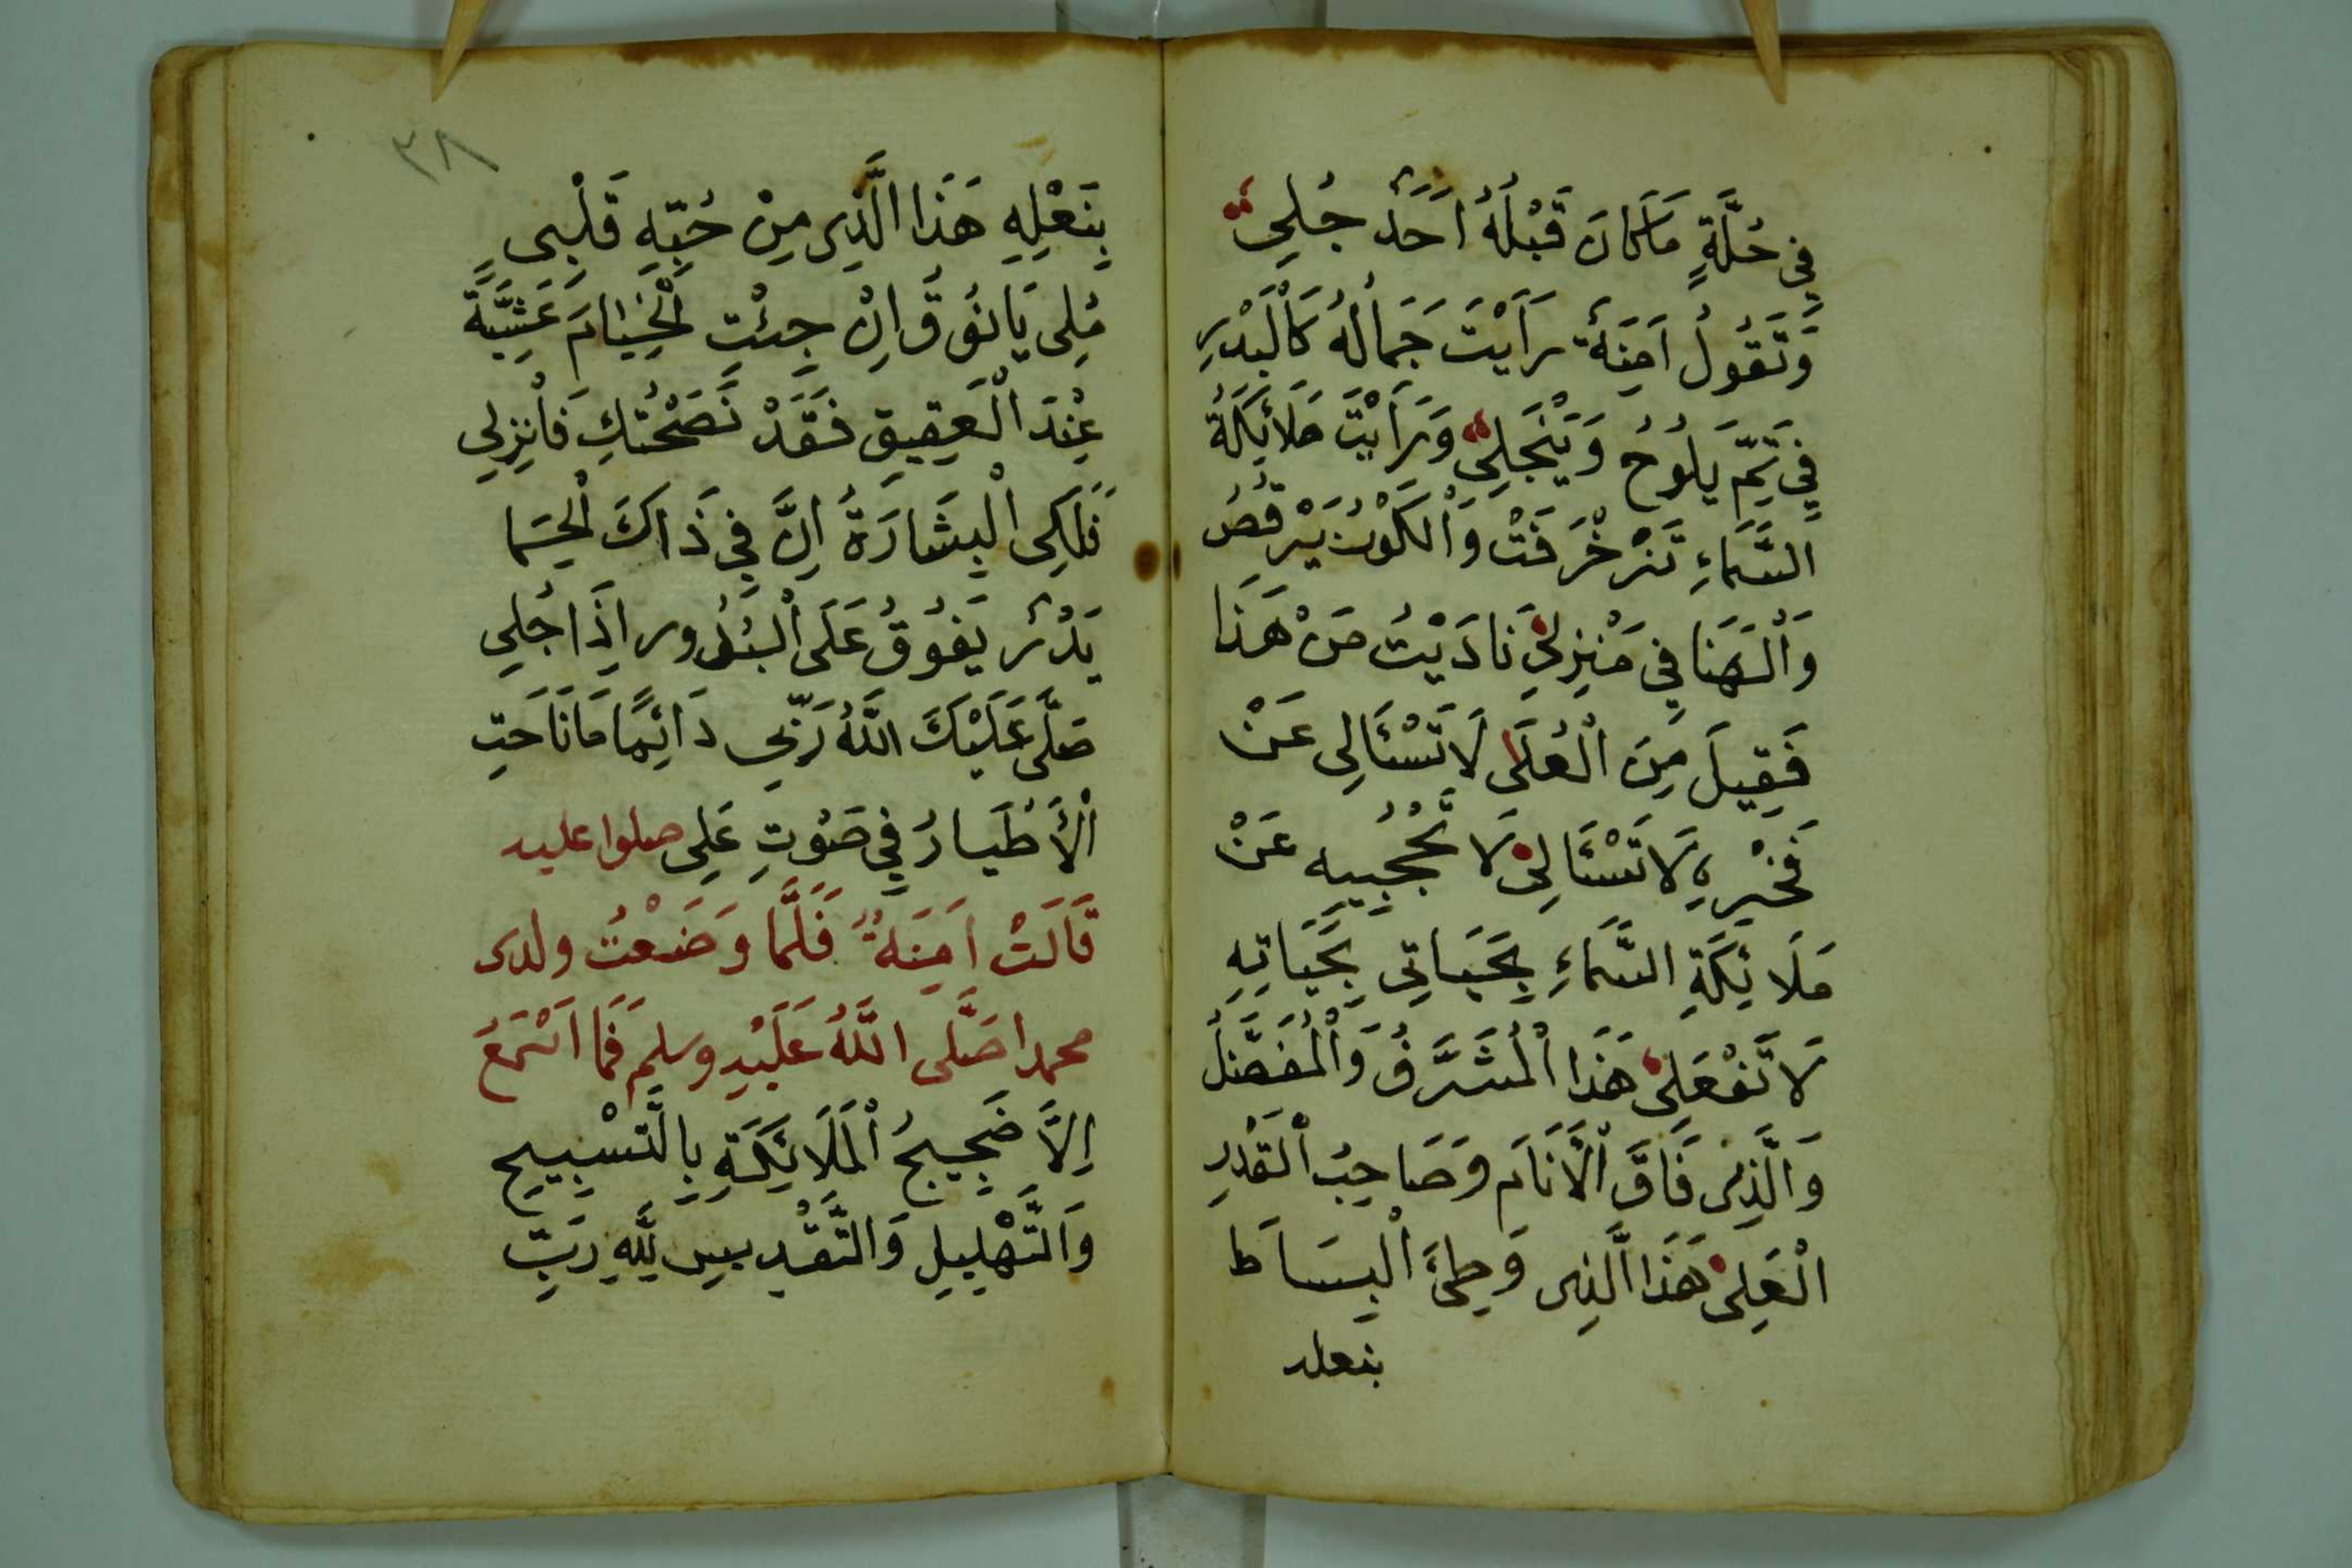 فِي حُلَّةٍ مَا كَانَ قَبْلَهُ اَحَدٌ جُلِي
وَتَقُولُ اَمِنَةٌ رَاَيْتَ جَمَالُهُ كَالْبَدْرِ
فِي تَمِّ يَلُوحُ وَيَنْجَلِي وَرَاَيْتَ مَلَائِكَةُ
السَّمَاءِ تَزَخْرَفَتْ وَالْكَوْنُ يَرْقُصُ
وَالْهَنَا فِي مَنْزِلِي نَادَيْتُ مَنْ هَذَا
فَقِيلَ مِنَ الْعُلَى لَا تَسْئَالِى عَنْ
فَخْرِهِ لَا تَسْئَالِى لَا تَحْجُبِيهِ عَنْ
مَلَائِكَةِ السَّمَاءِ بِحَيَاتِي بِحَيَاتِهِ
لَا تَفْعَلِى هَذَا الْمُشَرَّفُ وَالْمُفَضَّلُ
وَالَّذِى فَاقَ الْاَنَامَ وَصَاحِبُ الْقَدْرِ
الْعَلِى هَذَا الَّذِى وَطِئَ الْبِسَاطَ
بنعله
٣٨
بِنَعْلِهِ هَذَا الَّذِى مِنْ حُبِّهِ قَلْبِى
مُلِى يَا نُوقُ اِنْ جِئْتِ الْخِيَامَ عَشِيَّةً
عِنْدَ الْعَقِيقِ فَقَدْ نَصَحْتُكِ فَانْزِلِي
فَلَكِى الْبِشَارَةُ اِنَّ فِي ذَاكَ الْحِمَا
بَدْرٌ يَفُوقُ عَلَى الْبُدُورِ اِذَا جُلِي
صَلَّى عَلَيْكَ اللَّهُ رَبِّي دَائِمًا مَا نَاحَتِ
الْأَطْيَارُ فِي صَوْتِ عَلِى صلوا عليه
قَالَتْ اَمِنَةُ فَلَمَّا وَضَعْتُ ولدى
محمدا صَلَّى اللَّهُ عَلَيْهِ وسلم فَمَا اَسْمَعَ
اِلَّا ضَجِيجُ الْمَلَائِكَةِ بِالتَّسْبِيحِ
وَالتَّهْلِيلِ وَالتَّقْدِيسِ لِلَّهِ رَبِّ